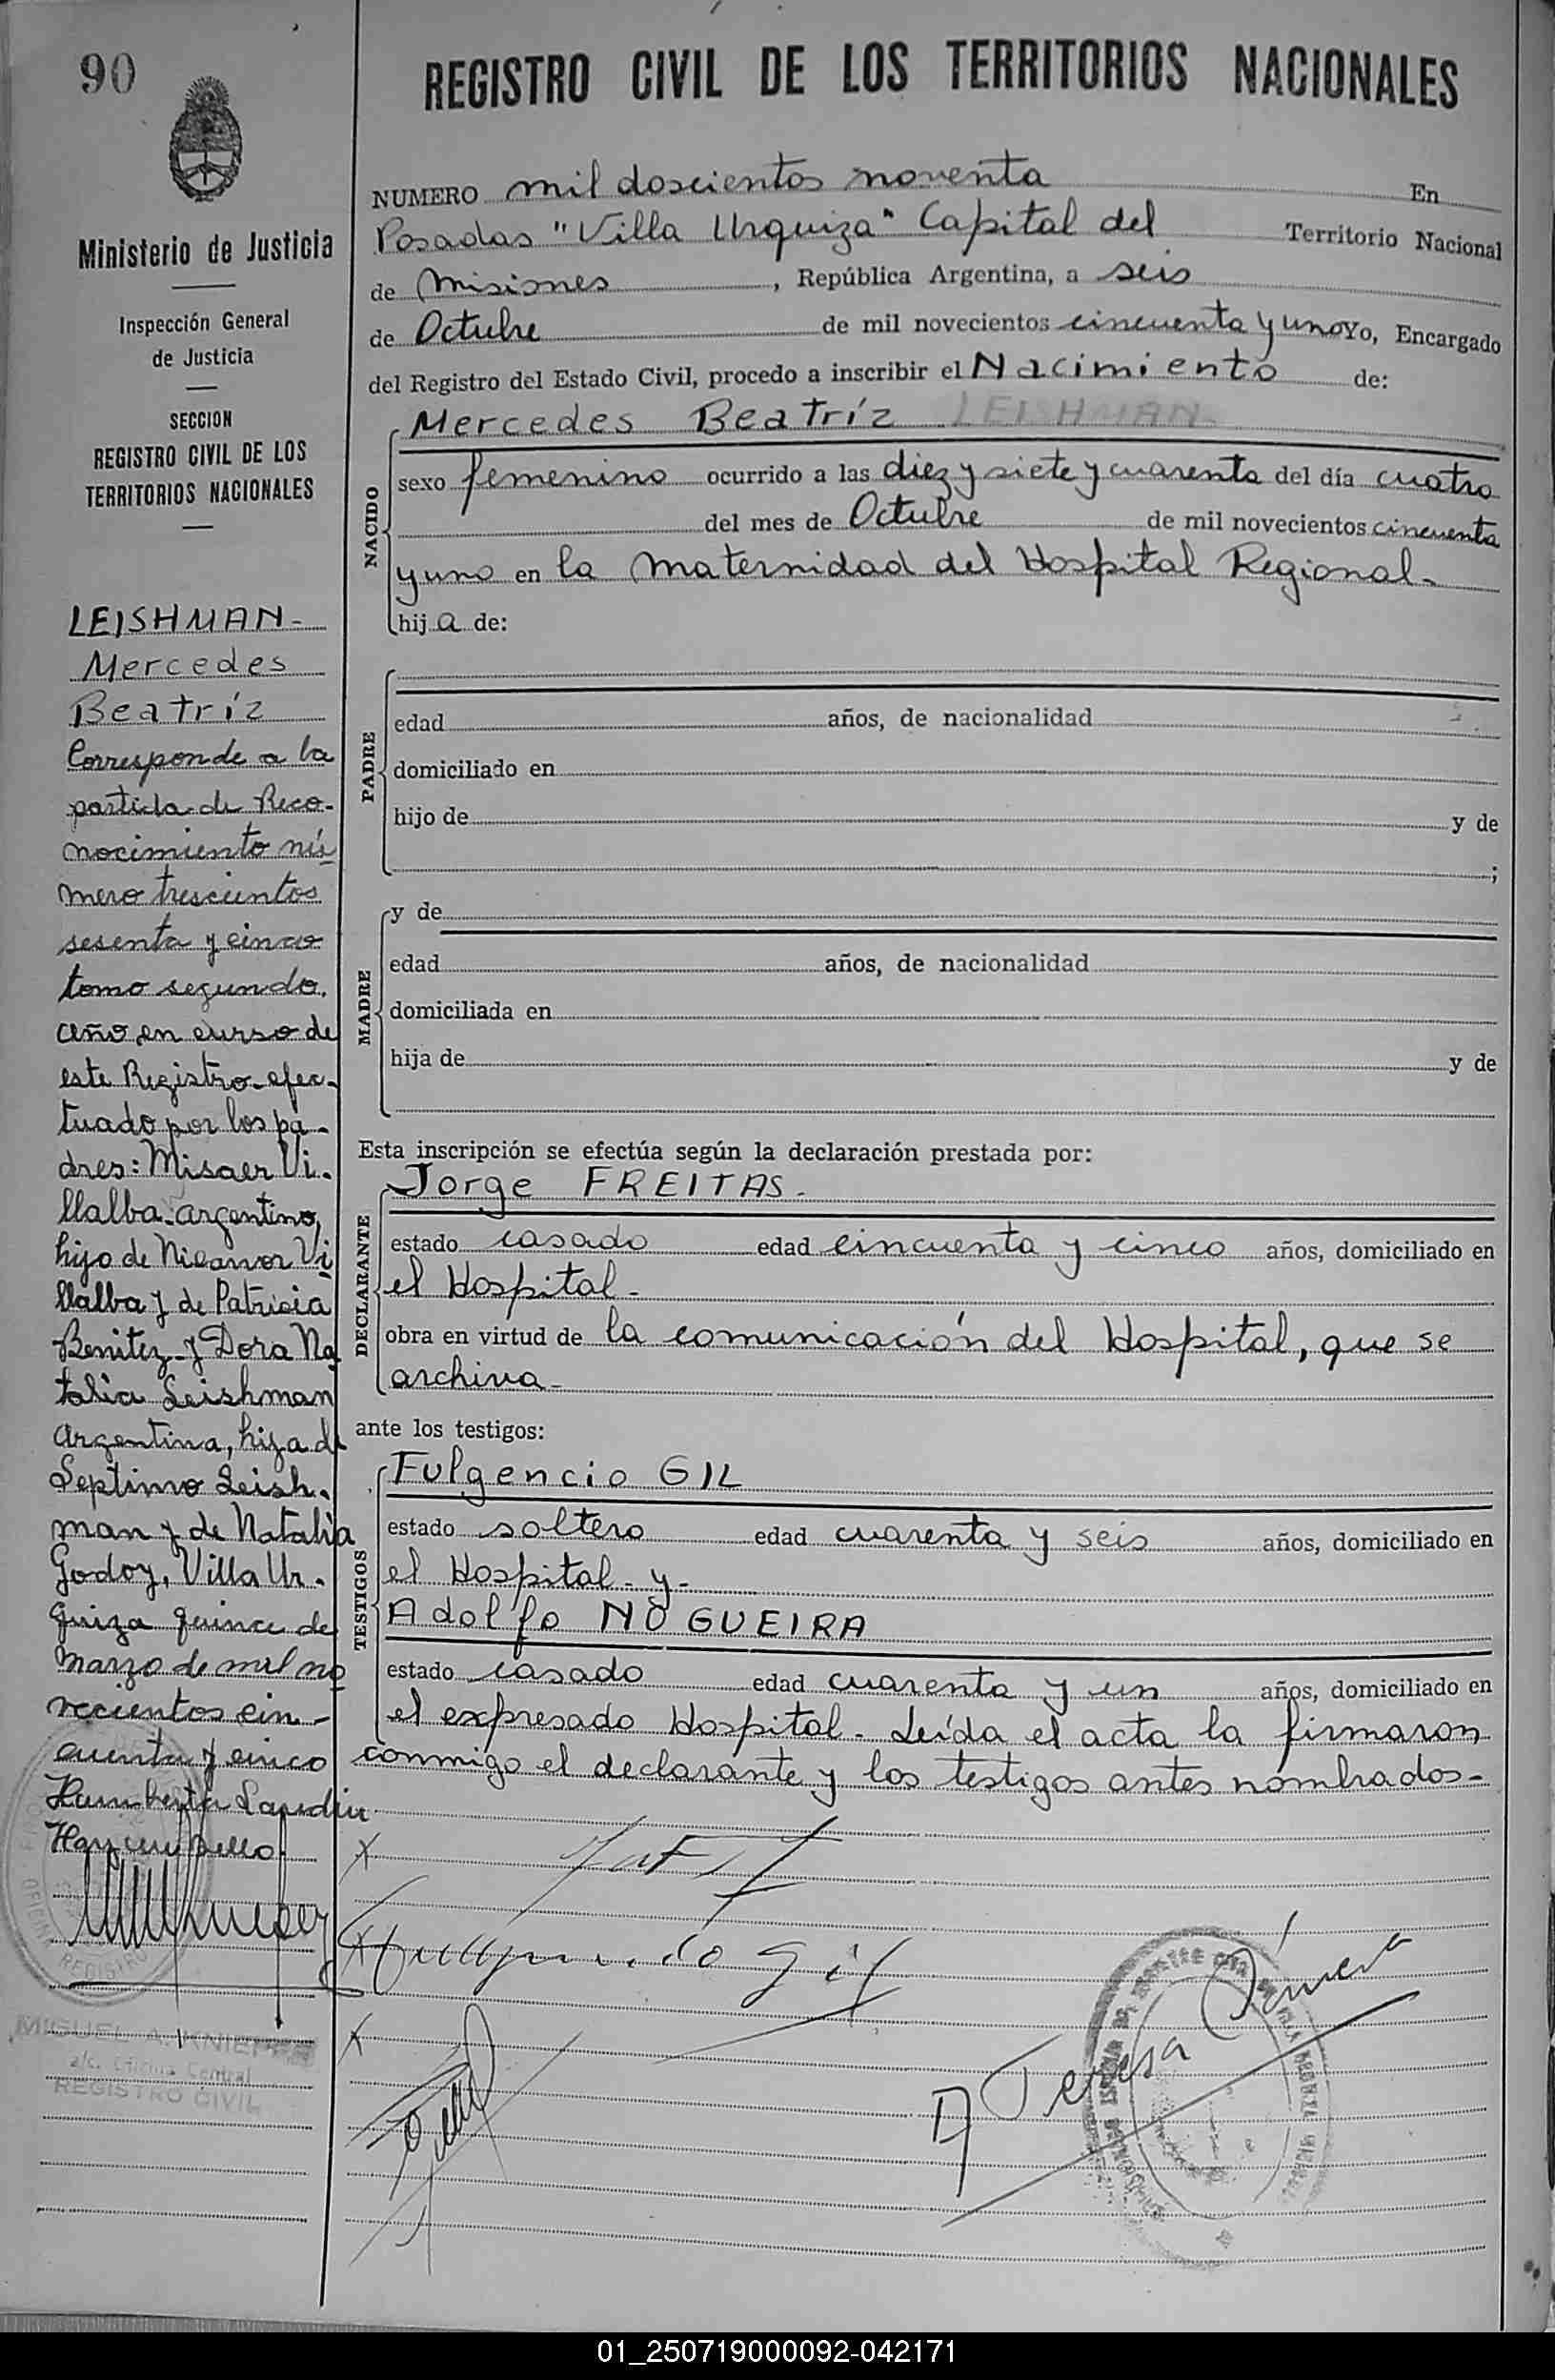 90
Ministerio de Justicia
Inspección General
de Justicia
SECCION
REGISTRO CIVIL DE LOS
TERRITORIOS NACIONALES
LEISHMAN-
Mercedes
Beatríz
Corresponde a la
partida de Reco-
nocimiento nú
mero trescientos
sesenta y cinco
tomo segundo,
año en curso de
este Registro efec-
tuado por los pa-
dres: Misaer Vi-
llalba argentino,
hijo de Nicanor Vi
llalba y de Patricia
Benitez y Dora Na
talia Leishman
argentina, hija de
Septimo Leish-
man y de Natalia
Godoy, Villa Ur-
quiza quince de
marzo de mil no
vecientos cin-
cuenta y cinco
MIGUEL A. KNIEPER
a/c. Oficina Central
REGISTRO CIVIL
REGISTRO CIVIL DE LOS TERRITORIOS NACIONALES
NUMERO mil doscientos noventa En
Posadas "Villa Urquiza" Capital del Territorio Nacional
de Misiones, República Argentina, a seis
de Octubre de mil novecientos cincuenta y uno Yo, Encargado
del Registro del Estado Civil, procedo a inscribir el Nacimiento de:
NACIDO
Mercedes Beatríz LEISHMAN
sexo femenino ocurrido a las diez y siete y cuarenta del día cuatro
del mes de Octubre de mil novecientos cincuenta
y uno en la Maternidad del Hospital Regional-
hij a de:
PADRE
edad años, de nacionalidad
domiciliado en
hijo de y de
;
MADRE
y de
edad años, de nacionalidad
domiciliada en
hija de y de
Esta inscripción se efectúa según la declaración prestada por:
DECLARANTE
Jorge FREITAS-
estado casado edad cincuenta y cinco años, domiciliado en
el Hospital-
obra en virtud de la comunicación del Hospital, que se
archiva-
ante los testigos:
TESTIGOS
Fulgencio GIL
estado soltero edad cuarenta y seis años, domiciliado en
el Hospital- y-
Adolfo NOGUEIRA
estado casado edad cuarenta y un años, domiciliado en
el expresado Hospital- Leída el acta la firmaron
conmigo el declarante y los testigos antes nombrados-
01_250719000092-042171